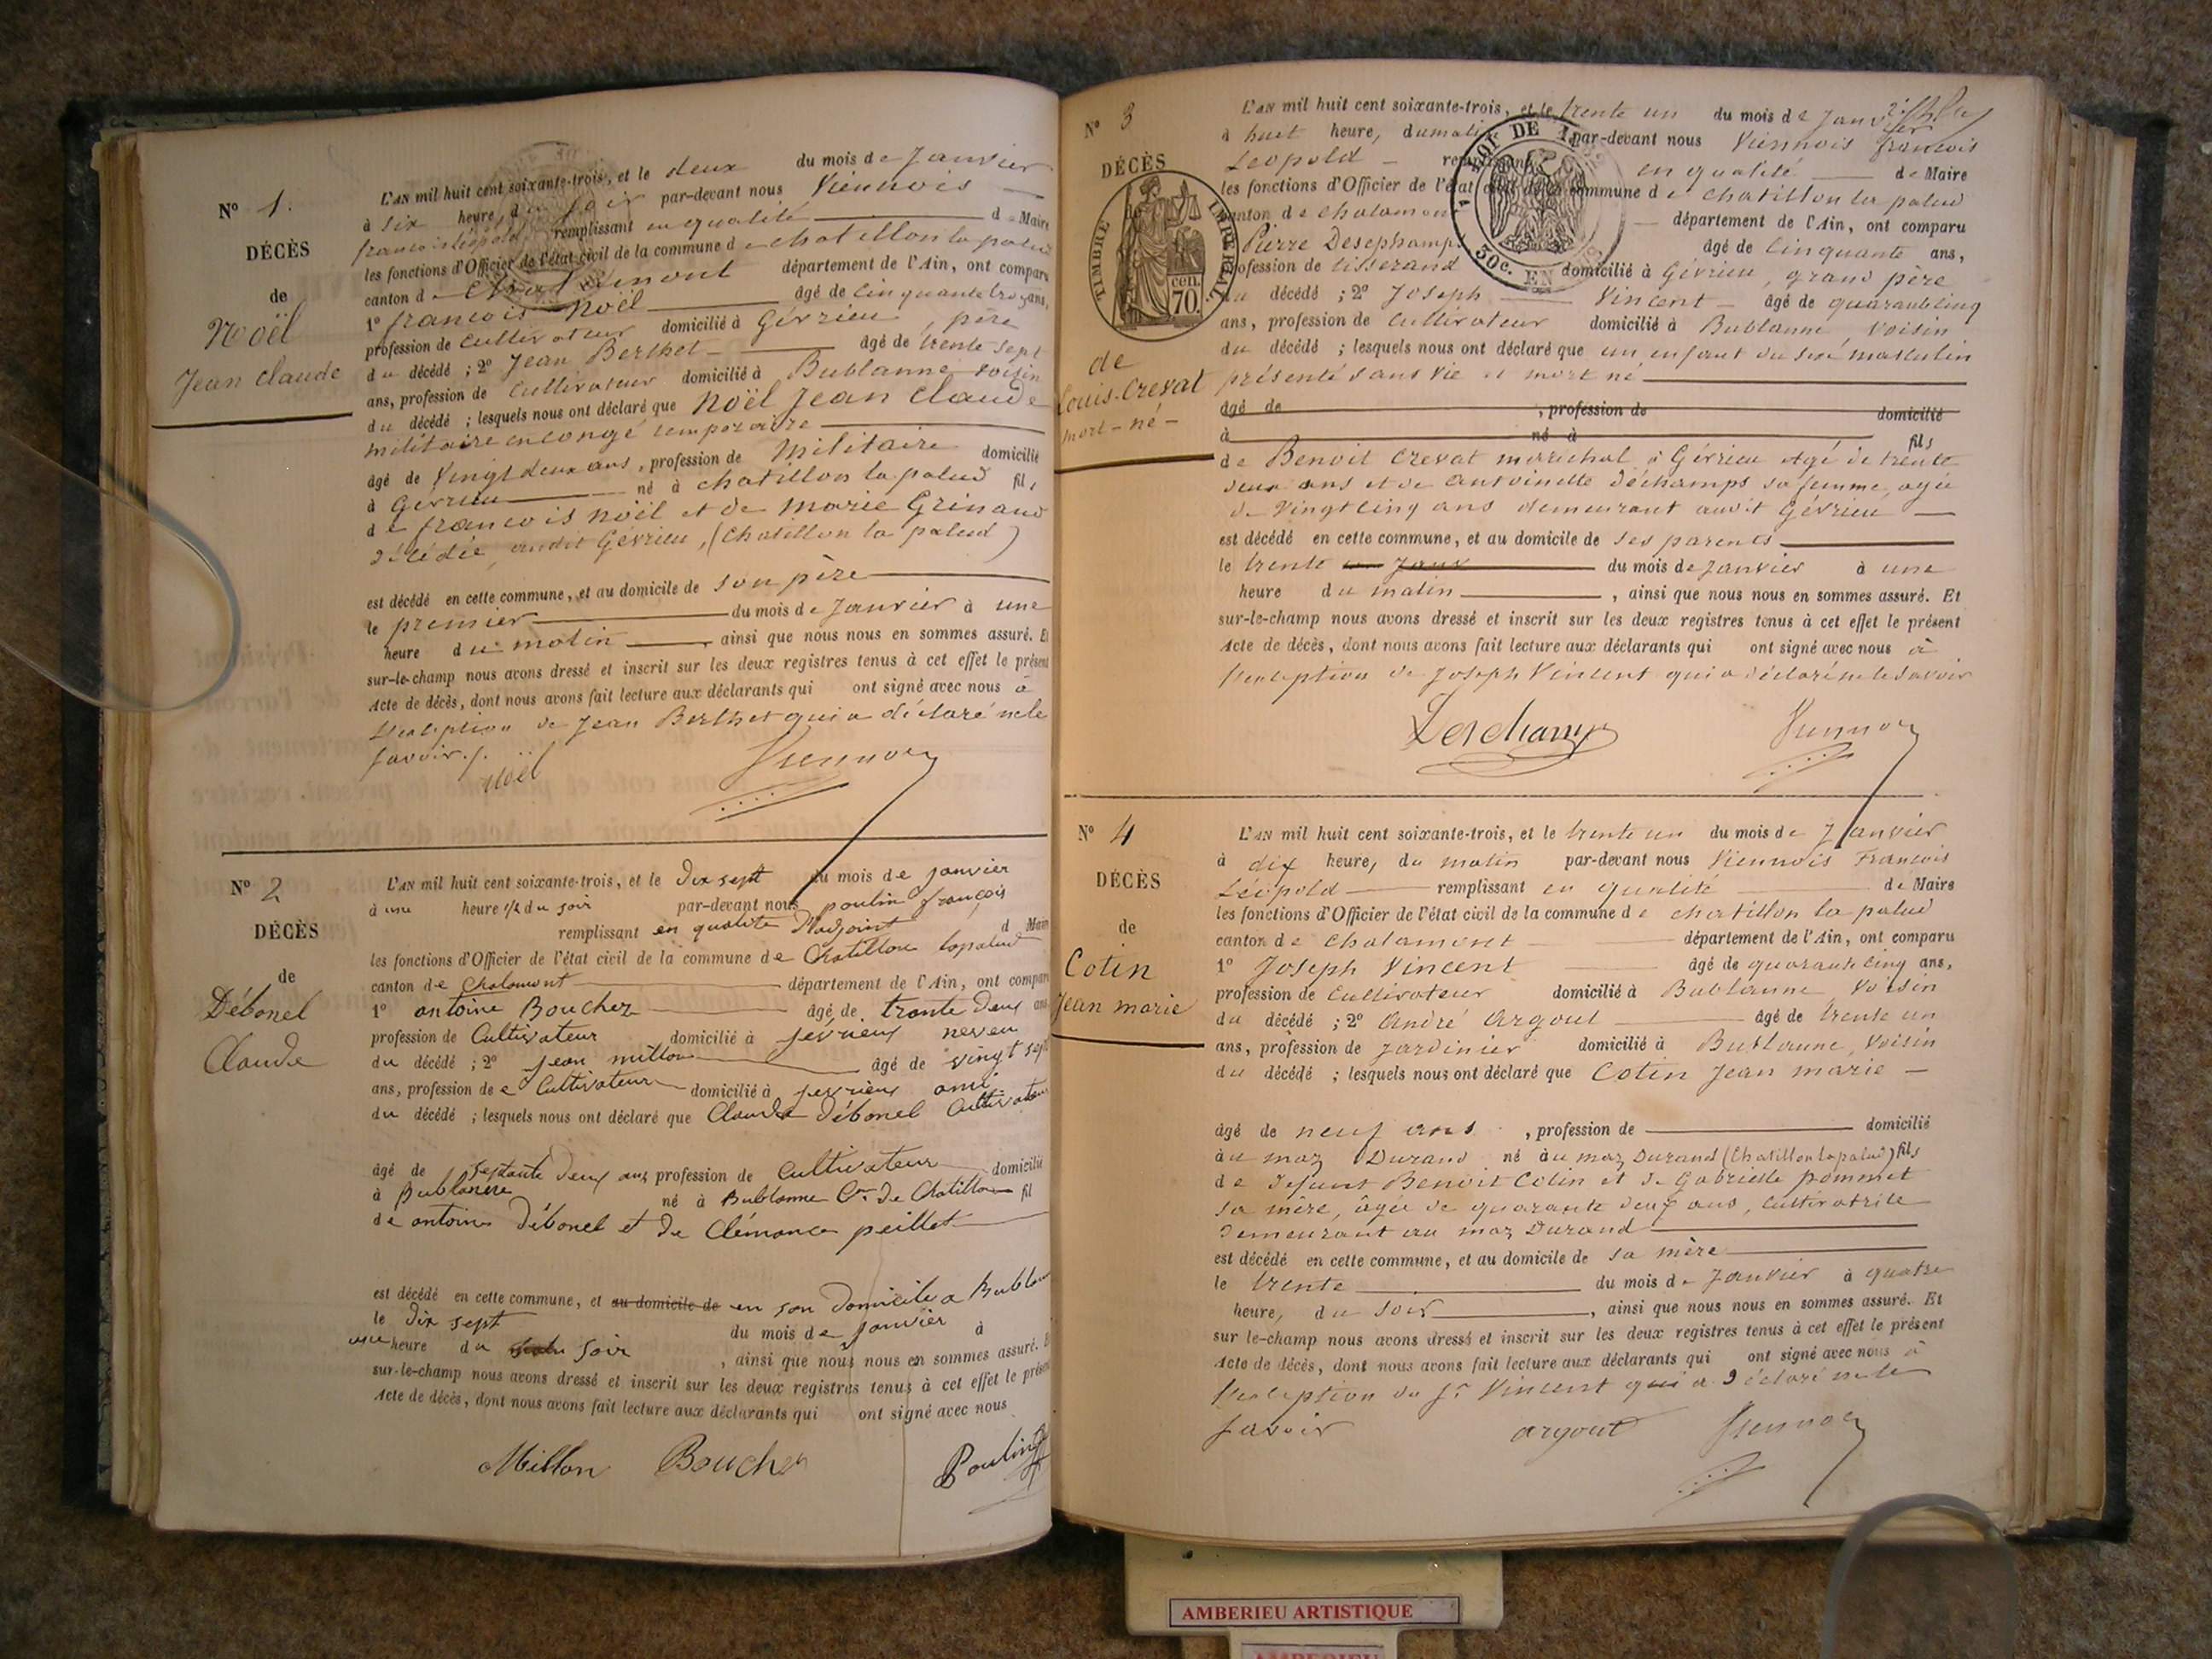 N° 1.
DÉCÈS
de
Noël
Jean Claude
L'AN mil huit cent soixante-trois, et le deux du mois de Janvier
à six heure, du soir par-devant nous Viennois
françois léopold remplissant en qualité de Maire
les fonctions d'Officier de l'état civil de la commune de chatillon la palud
canton de Chalamont département de l'Ain, ont comparu
1° francois Noël âgé de cinquante troi ans,
profession de cultivateur domicilié à Gévrieu, père
du décédé ; 2° Jean Berthet âgé de trente sept
ans, profession de cultivateur domicilié à Bublanne voisin
du décédé ; lesquels nous ont déclaré que Noël Jean Claude
militaire en congé temporaire
âgé de Vingt deux ans, profession de Militaire domicilié
à Gévrieu né à chatillon la palud fils
de francois noël et de marie Grinand
décédée, audit Gévrieu, (Chatillon la palud)
est décédé en cette commune, et au domicile de son père
le premier du mois de Janvier à une
heure du matin ainsi que nous nous en sommes assuré. Et
sur-le-champ nous avons dressé et inscrit sur les deux registres tenus à cet effet le présent
Acte de décès, dont nous avons fait lecture aux déclarants qui ont signé avec nous à
l'exception de Jean Berthet qui a déclaré ne le
savoir./.
Noël Viennois
N° 2
DÉCÈS
de
Débonel
Claude
L'AN mil huit cent soixante-trois, et le dix sept du mois de janvier
à une heure 1/2 du soir par-devant nous poulin françois
remplissant en qualité d'adjoint d Maire
les fonctions d'Officier de l'état civil de la commune de Chatillon lapalud
canton de Chalamont département de l'Ain, ont comparu
1° antoine Bouchez âgé de trante deux ans
profession de Cultivateur domicilié à jévrieux neveu
du décédé ; 2° jean millon âgé de vingt sept
ans, profession de Cultivateur domicilié à jevrieux ami
du décédé ; lesquels nous ont déclaré que Claude Débonel Cultivateur
âgé de septante deux ans profession de Cultivateur domicilié
à Bublanne né à Bublanne Cne de Chatillon fil
de antoine Débonel et de Clémance peillet
est décédé en cette commune, et au domicile de en son domicile a Bublan
le dix sept du mois de janvier à
une heure du soir, ainsi que nous nous en sommes assuré. E
sur-le-champ nous avons dressé et inscrit sur les deux registres tenus à cet effet le présen
Acte de décès, dont nous avons fait lecture aux déclarants qui ont signé avec nous
Millon Boucher Poulin
N° 3
DÉCÈS
TIMBRE IMPERIAL
70.
cen.
de
Louis-Crevat
mort-né-
L'AN mil huit cent soixante-trois, et le trente un du mois de Janvier
à huit heure, du matin par-devant nous Viennois francois
Léopold remplissant en qualité de Maire
les fonctions d'Officier de l'état civil de la commune de chatillon la palud
canton de chalamont département de l'Ain, ont comparu
Pierre Desephamps âgé de Cinquante ans,
profession de tisserand domicilié à Gévrieu, grand père
du décédé ; 2° Joseph Vincent âgé de quarantecinq
ans, profession de cultivateur domicilié à Bublanne voisin
du décédé ; lesquels nous ont déclaré que un enfant du sexe masculin
présenté sans vie et mort né
âgé de , profession de domicilié
à né à fils
de Benoit Crevat maréchal à Gévrieu agé de trente
deux ans et de antoinette déchamps sa femme, agée
de vingtcinq ans demeurant audit Gévrieu
est décédé en cette commune, et au domicile de ses parents
le trente du mois de Janvier à une
heure du matin, ainsi que nous nous en sommes assuré. Et
sur-le-champ nous avons dressé et inscrit sur les deux registres tenus à cet effet le présent
Acte de décès, dont nous avons fait lecture aux déclarants qui ont signé avec nous à
l'exception de Joseph Vincent qui a déclaré ne le savoir
Deschamps Viennois
N° 4
DÉCÈS
de
Cotin
Jean marie
L'AN mil huit cent soixante-trois, et le trente un du mois de Janvier
à dix heure, du matin par-devant nous Viennois Francois
Léopold remplissant en qualité de Maire
les fonctions d'Officier de l'état civil de la commune de chatillon la palud
canton de chalamont département de l'Ain, ont comparu
1° Joseph Vincent âgé de quarante cinq ans,
profession de cultivateur domicilié à Bublanne voisin
du décédé ; 2° André Argout âgé de trente un
ans, profession de Jardinier domicilié à Bublanne, voisin
du décédé ; lesquels nous ont déclaré que Cotin Jean marie
âgé de neuf ans, profession de domicilié
à u maz Durand né à u maz Durand (Chatillon lapalud) fils
de défunt Benoit Cotin et de Gabrielle pommet
sa mère, âgée de quarante deux ans, cultivatrice
demeurant au maz Durand
est décédé en cette commune, et au domicile de sa mère
le trente du mois de Janvier à quatre
heure, du soir, ainsi que nous nous en sommes assuré. Et
sur le-champ nous avons dressé et inscrit sur les deux registres tenus à cet effet le présent
Acte de décès, dont nous avons fait lecture aux déclarants qui ont signé avec nous à
l'exception du Sr Vincent qui a déclaré ne le
savoir argout Viennois
AMBERIEU ARTISTIQUE
AMBERIEU